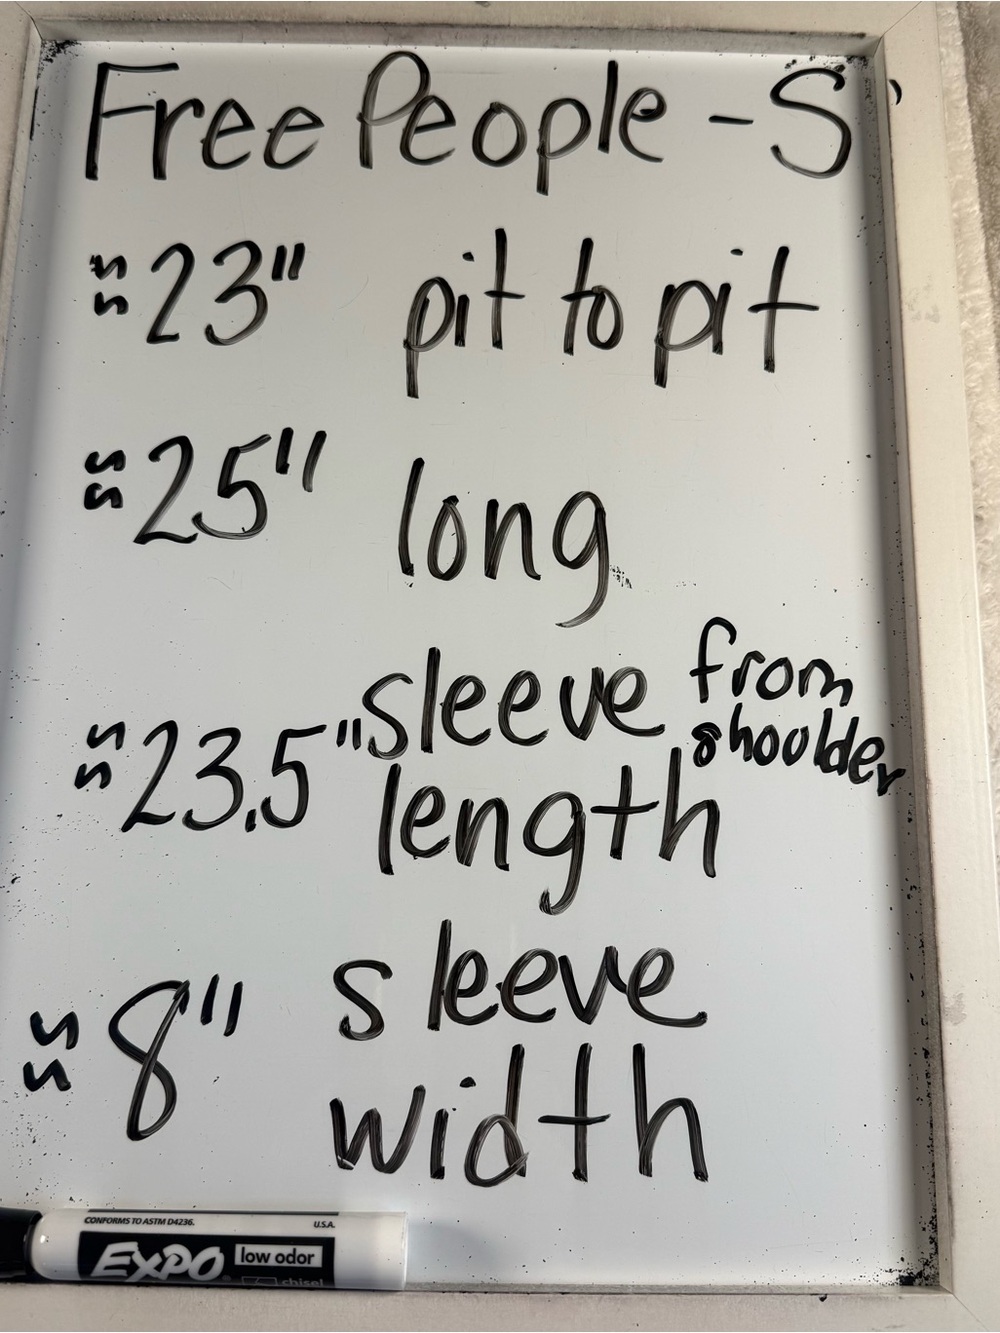 Free People - S
≈ 23" pit to pit
≈ 25" long
≈ 23.5" sleeve length from shoulder
≈ 8" sleeve width
CONFORMS TO ASTM D4236. U.S.A.
EXPO low odor
chisel